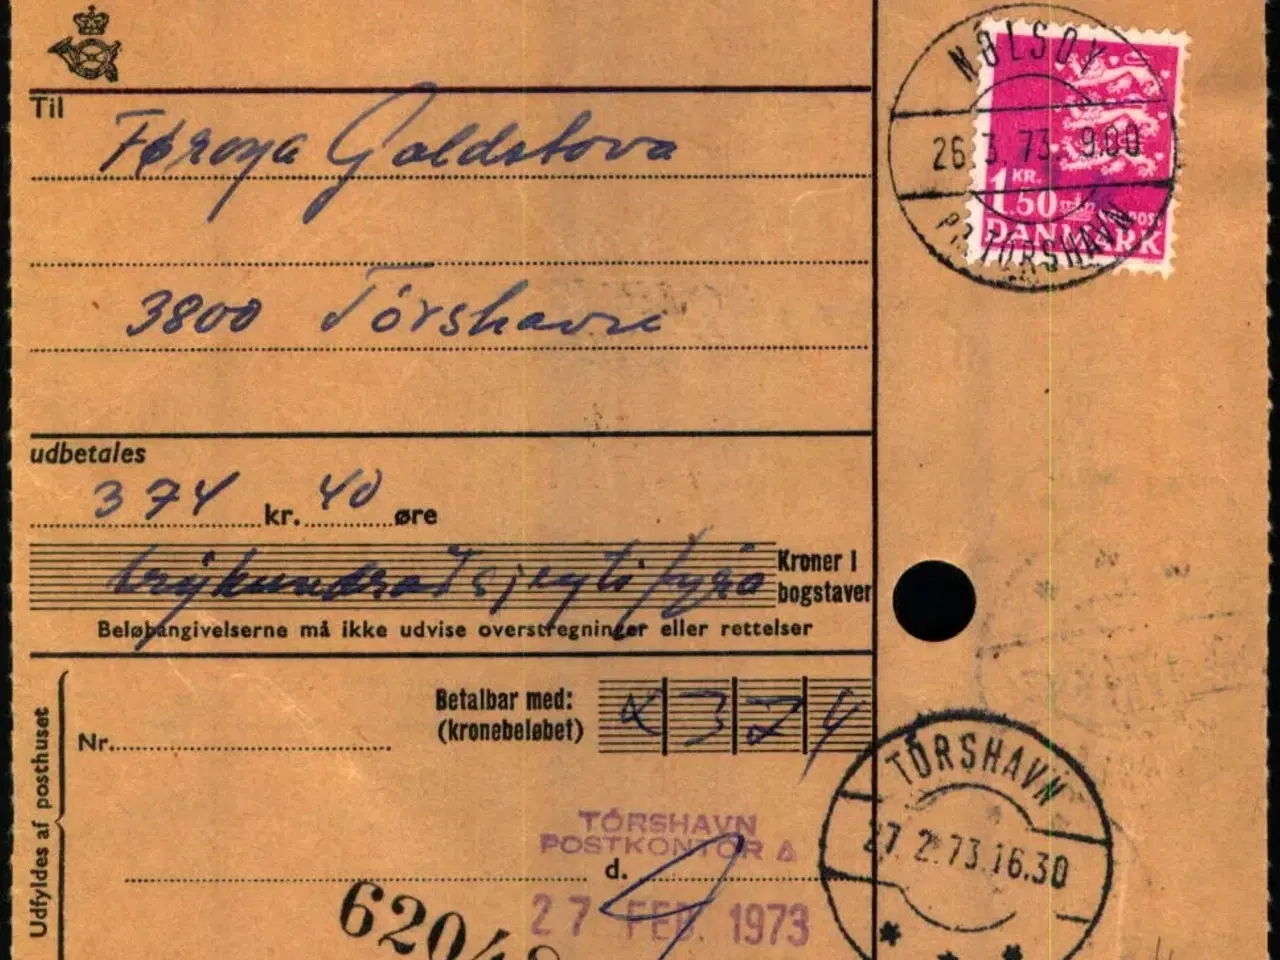 Til
Føroya Gjaldstova
3800 Tórshavn
udbetales
374 kr. 40 øre
trýhundrað sjeyti fýra
Kroner i
bogstaver
Beløbangivelserne må ikke udvise overstregninger eller rettelser
Udfyldes af posthuset
Nr.
Betalbar med:
(kronebeløbet)
374
TÓRSHAVN
POSTKONTOR A
d.
27 FEB. 1973
NÓLSOY
26.3.73. 9.00
PR. TÓRSHAVN
1 KR.
50
DANMARK
TÓRSHAVN
27.2.73.16.30